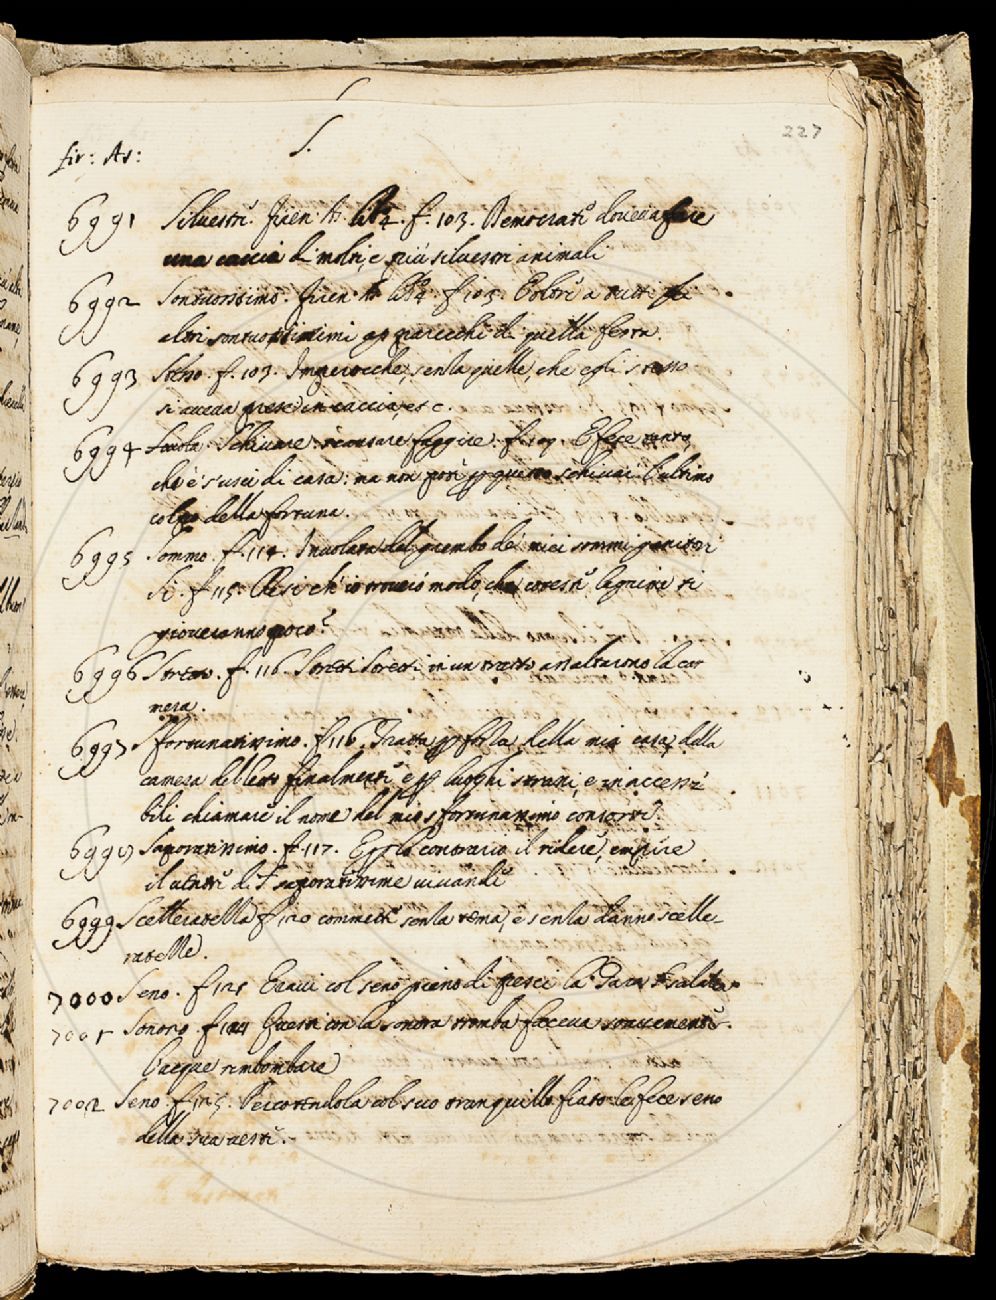 227
S.
fir: As:
6991 Silvestri. firen: As: lib. 4. f. 103. Democrate doveva fare
una caccia di molti, e più silvestri animali
6992 Sontuosissimo. firen: As: lib. 4. f. 103. Coloro a tutti
altri sontuosissimi apparecchi di quella festa.
6993 f. 103. Imperocche, senza quelle, che egli stesso
si aveva prese in caccia, e c.
6994 Scuola. Schivare. scansare fuggire. f. 109. E fece
che s'uscì di casa: ma non potè per questo schivar l'ultimo
colpo della fortuna.
6995 Sommo. f. 114. Involata del grembo de' miei sommi genitori
Si. f. 115. che io trovi modo, che coteste lagrime ti
gioveranno poco?
6996 Stretto. f. 116. Stretti stretti in un tratto assaltarono la ca-
mera.
6997 Sfortunatissimo. f. 116. Tratta per forza della mia casa, della
camera del letto finalmente e per luoghi strani, e inaccessi-
bili chiamare il nome del mio sfortunatissimo consorte?
6998 Saporitissimo. f. 117. E per lo contrario il ridere, empire
il ventre di saporitissime vivande
6999 Scelleratella f. 120 commette senza tema, e senza danno scelle-
ratelle.
7000 Seno. f. 125 Eravi col seno pieno di pesci la
7001 Sonoro. f. 124 Questi con la sonora tromba faceva soavemente
l'acque rimbombare
7002 Seno. f. 125. Percotendola col suo tranquillo fiato le fece seno
della sua veste.